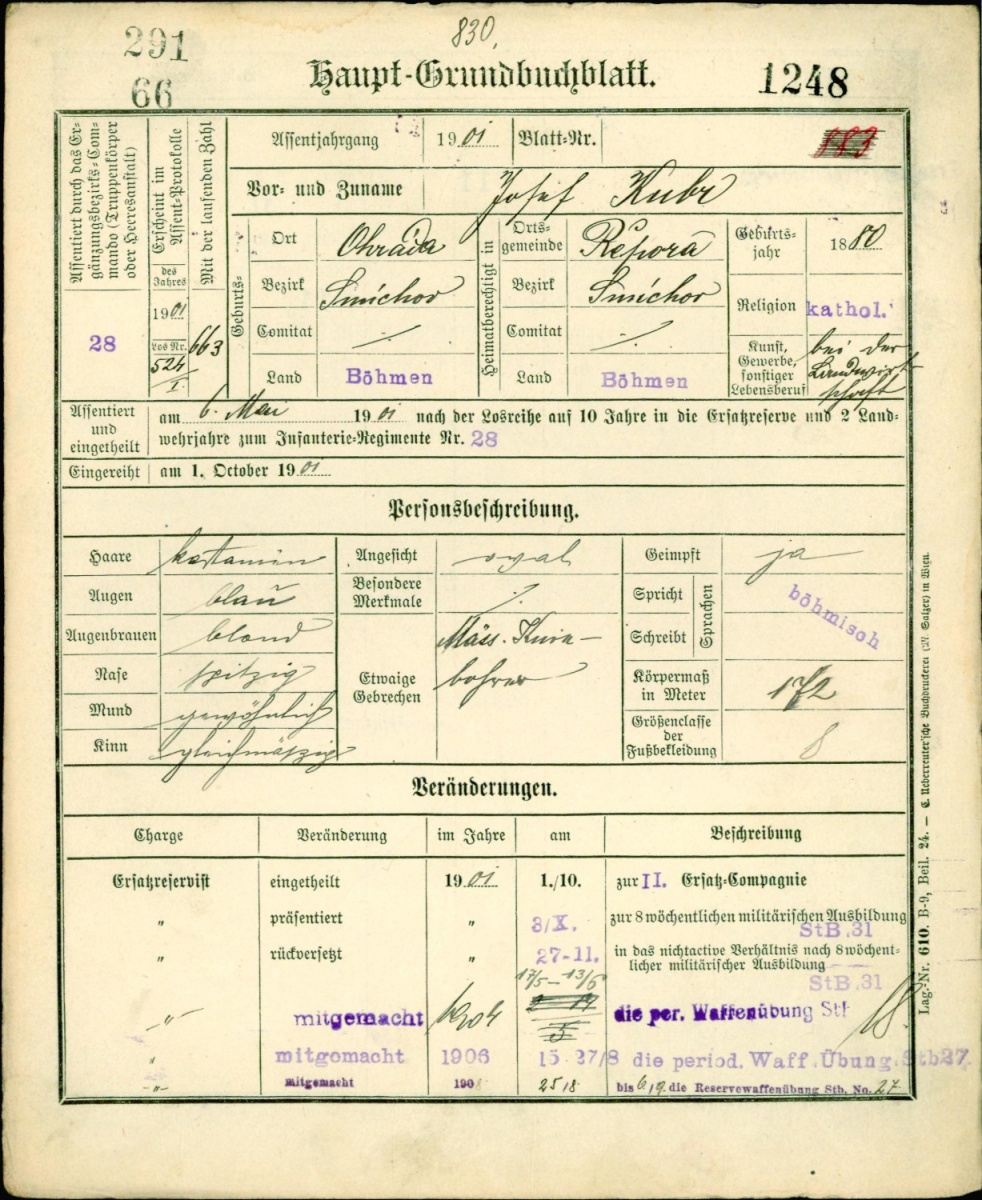 291
66
830.
Haupt-Grundbuchblatt.
1248
Assentiert durch das Ergänzungsbezirks-Commando (Truppenkörper oder Heeresanstalt)
28
Erscheint im Assent-Protokolle
des Jahres
1901
Los Nr.
524
I.
Mit der laufenden Zahl
663
Assentjahrgang 1901 Blatt-Nr. 183
Vor- und Zuname Josef Kubr
Geburts-
Ort Ohrada
Bezirk Smíchov
Comitat ./.
Land Böhmen
Heimatberechtigt in
Ortsgemeinde Řepora
Bezirk Smíchov
Comitat ./.
Land Böhmen
Geburtsjahr 1880
Religion kathol.
Kunst, Gewerbe, sonstiger Lebensberuf bei der Landwirtschaft
Assentiert und eingetheilt
am 6. Mai 1901 nach der Losreihe auf 10 Jahre in die Ersatzreserve und 2 Land-
wehrjahre zum Infanterie-Regimente Nr. 28
Eingereiht am 1. October 1901
Personsbeschreibung.
Haare kastanien
Augen blau
Augenbrauen blond
Nase spitzig
Mund gewöhnlich
Kinn gleichmässig
Angesicht oval
Besondere Merkmale ./.
Etwaige Gebrechen Mäss.
Geimpft ja
Spricht
Schreibt
Sprachen
böhmisch
Körpermaß in Meter 172
Größenclasse der Fußbekleidung 8
Veränderungen.
Charge Veränderung im Jahre am Beschreibung
Ersatzreservist eingetheilt 1901 1./10. zur II. Ersatz-Compagnie
" präsentiert " 3/X. zur 8 wöchentlichen militärischen Ausbildung
StB.31
" rückversetzt " 27-11. in das nichtactive Verhältnis nach 8 wöchent-
licher militärischer Ausbildung
StB.31
17/5 – 13/6
-"- mitgemacht 1904 die per. Waffenübung Stb
" mitgemacht 1906 15-27/8 die period. Waff.Übung.Stb27
-"- mitgemacht 1908 25/8 bis 6/9 die Reservewaffenübung Stb. No. 27
Lag.-Nr. 610. B-9, Beil. 24. — C. Ueberreuter'sche Buchdruckerei (M. Salzer) in Wien.